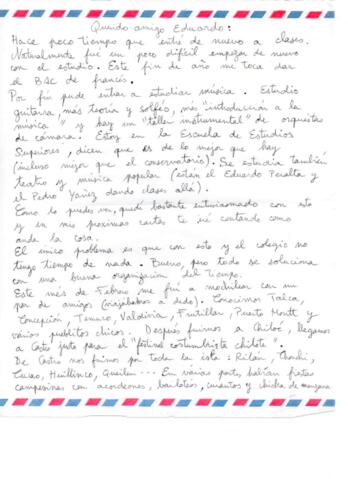 Querido amigo Eduardo:
Hace poco tiempo que entré de nuevo a clases.
Naturalmente fué un poco difícil empezar de nuevo
con el estudio. Este fin de año me toca dar
el BAC de francés.
Por fin pude entrar a estudiar música. Estudio
guitarra, más teoría y solfeo, más "introducción a la
música" y hay un "taller instrumental" de orquestas
de cámara. Estoy en la Escuela de Estudios
Superiores, dicen que es de lo mejor que hay
(incluso mejor que el conservatorio). Se estudia también
teatro y música popular (están el Eduardo Peralta y
el Pedro Yañez dando clases allá).
Como lo puedes ver, quedé bastante entusiasmado con esto
y en mis próximas cartas te iré contando como
anda la cosa.
El único problema es que con esto y el colegio no
tengo tiempo de nada. Bueno, pero todo se soluciona
con una buena organización del tiempo.
Este mes de Febrero me fui a mochilear con un
par de amigos (viajábamos a dedo). Conocimos Talca,
Concepción, Temuco, Valdivia, Frutillar, Puerto Montt y
varios pueblitos chicos. Después fuimos a Chiloé, llegamos
a Castro justo para el "festival costumbrista chilote".
De Castro nos fuimos por toda la isla: Rilán, Chonchi,
Cucao, Huillinco, Queilen... En varias partes habían fiestas
campesinas con acordeones, bailoteos, curantos y chicha de manzana